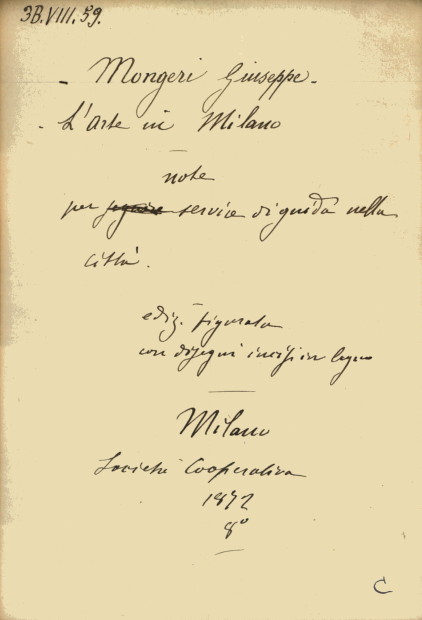 3B.VIII.59.
- Mongeri Giuseppe -
- L'arte in Milano
note
per servire di guida nella
città.
ediz. figurata
con disegni incisi in legno
Milano
Società Cooperativa
1872
8°
C